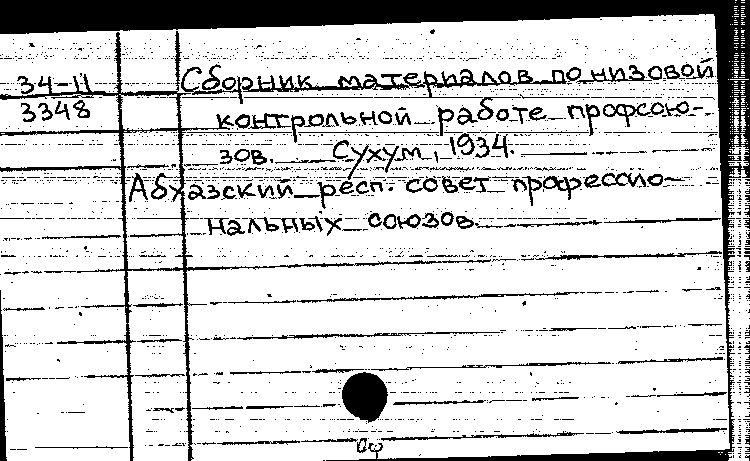 34-11
3348
Сборник материалов по низовой
контрольной работе профсою-
зов. Сухум, 1934.
Абхазский респ. совет профессио-
нальных союзов.